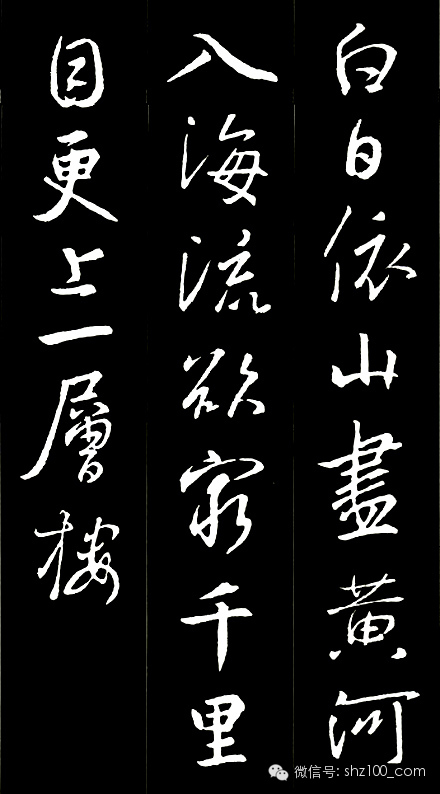 白日依山盡黄河
入海流欲窮千里
目更上一層樓
微信号: shz100_com